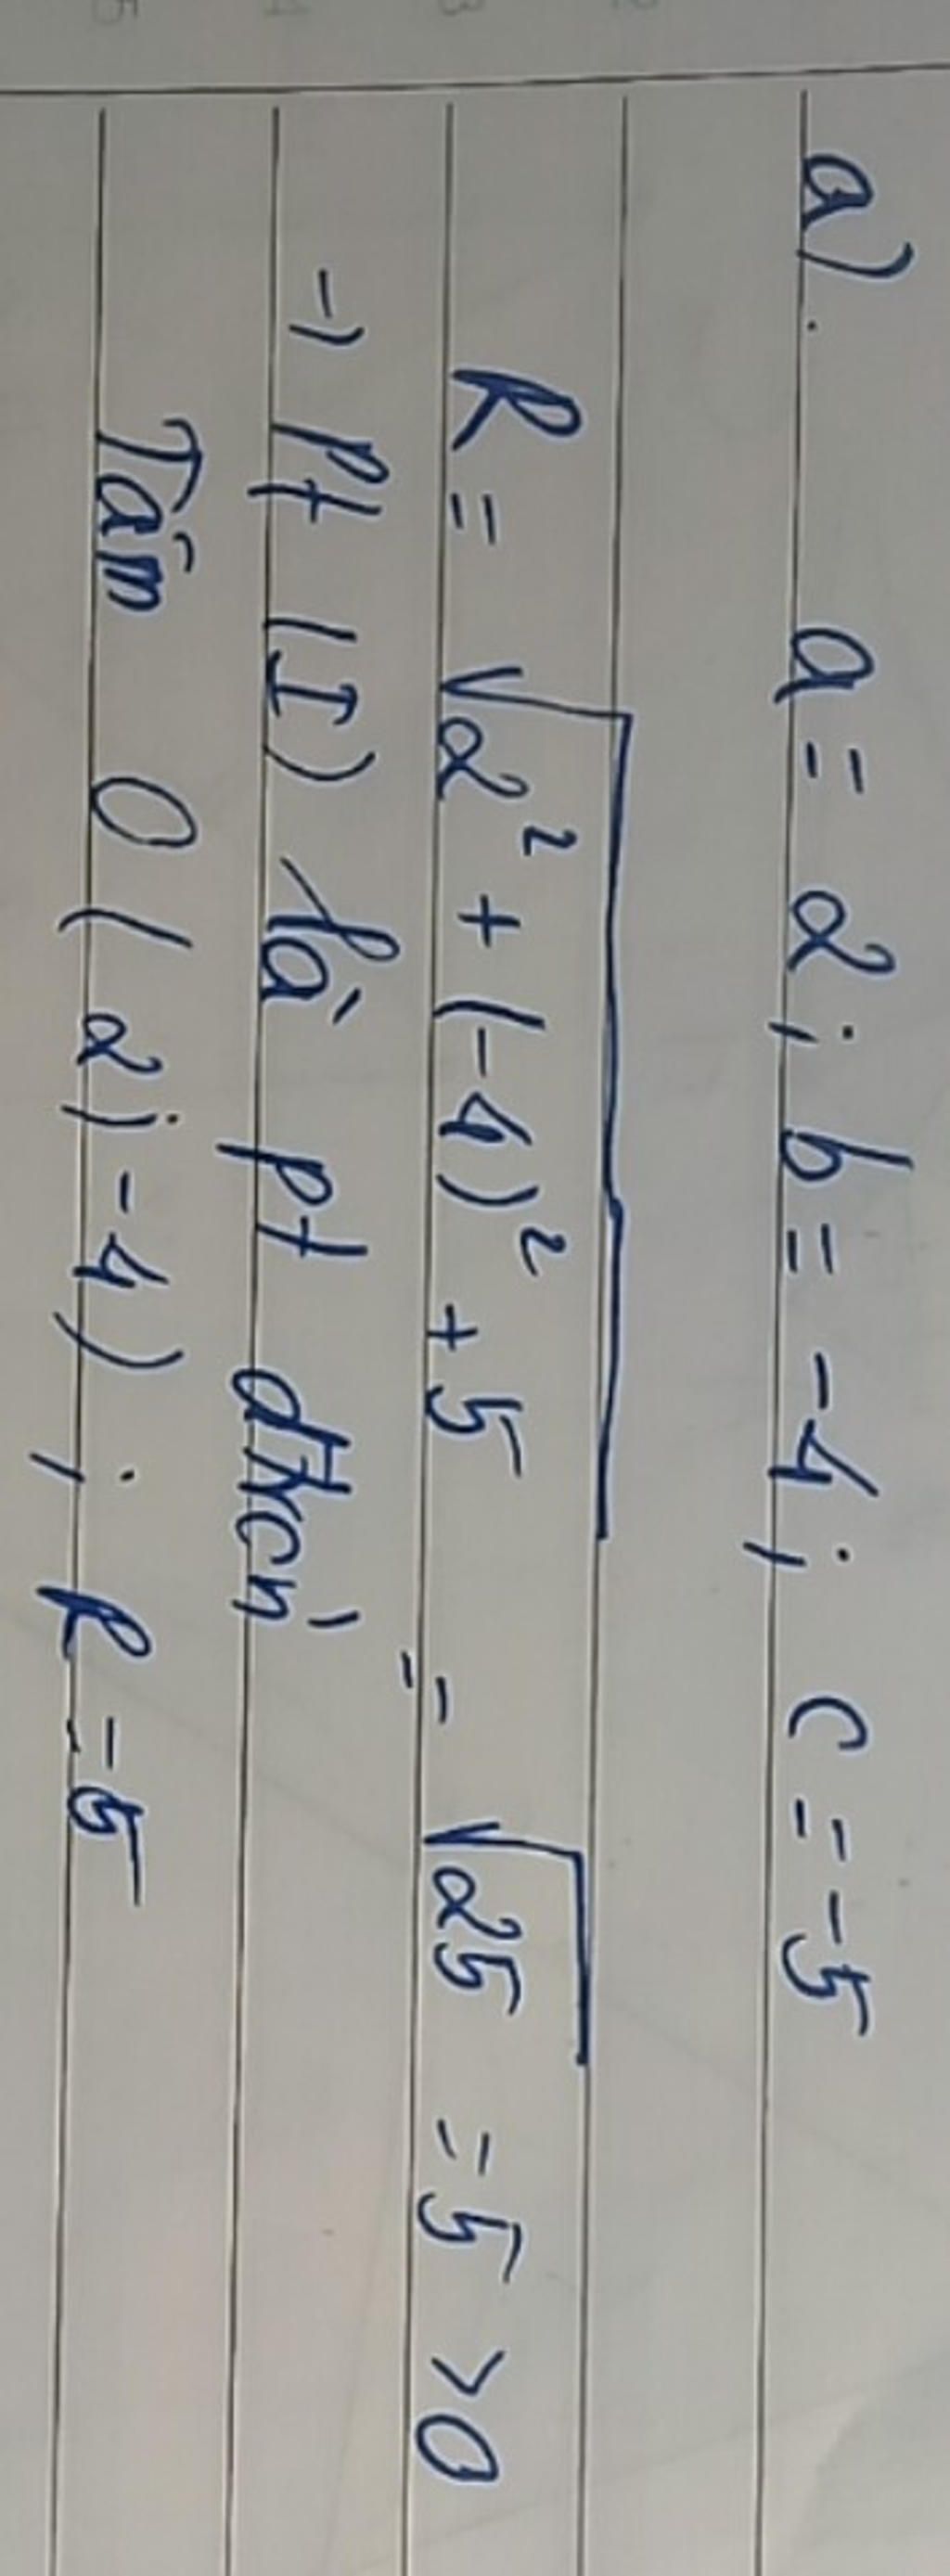 a). a = 2; b = -4; c = -5
R = √2² + (-4)² + 5 = √25 = 5 > 0
-) Pt (I) là pt
Tâm O (2; -4); R = 5